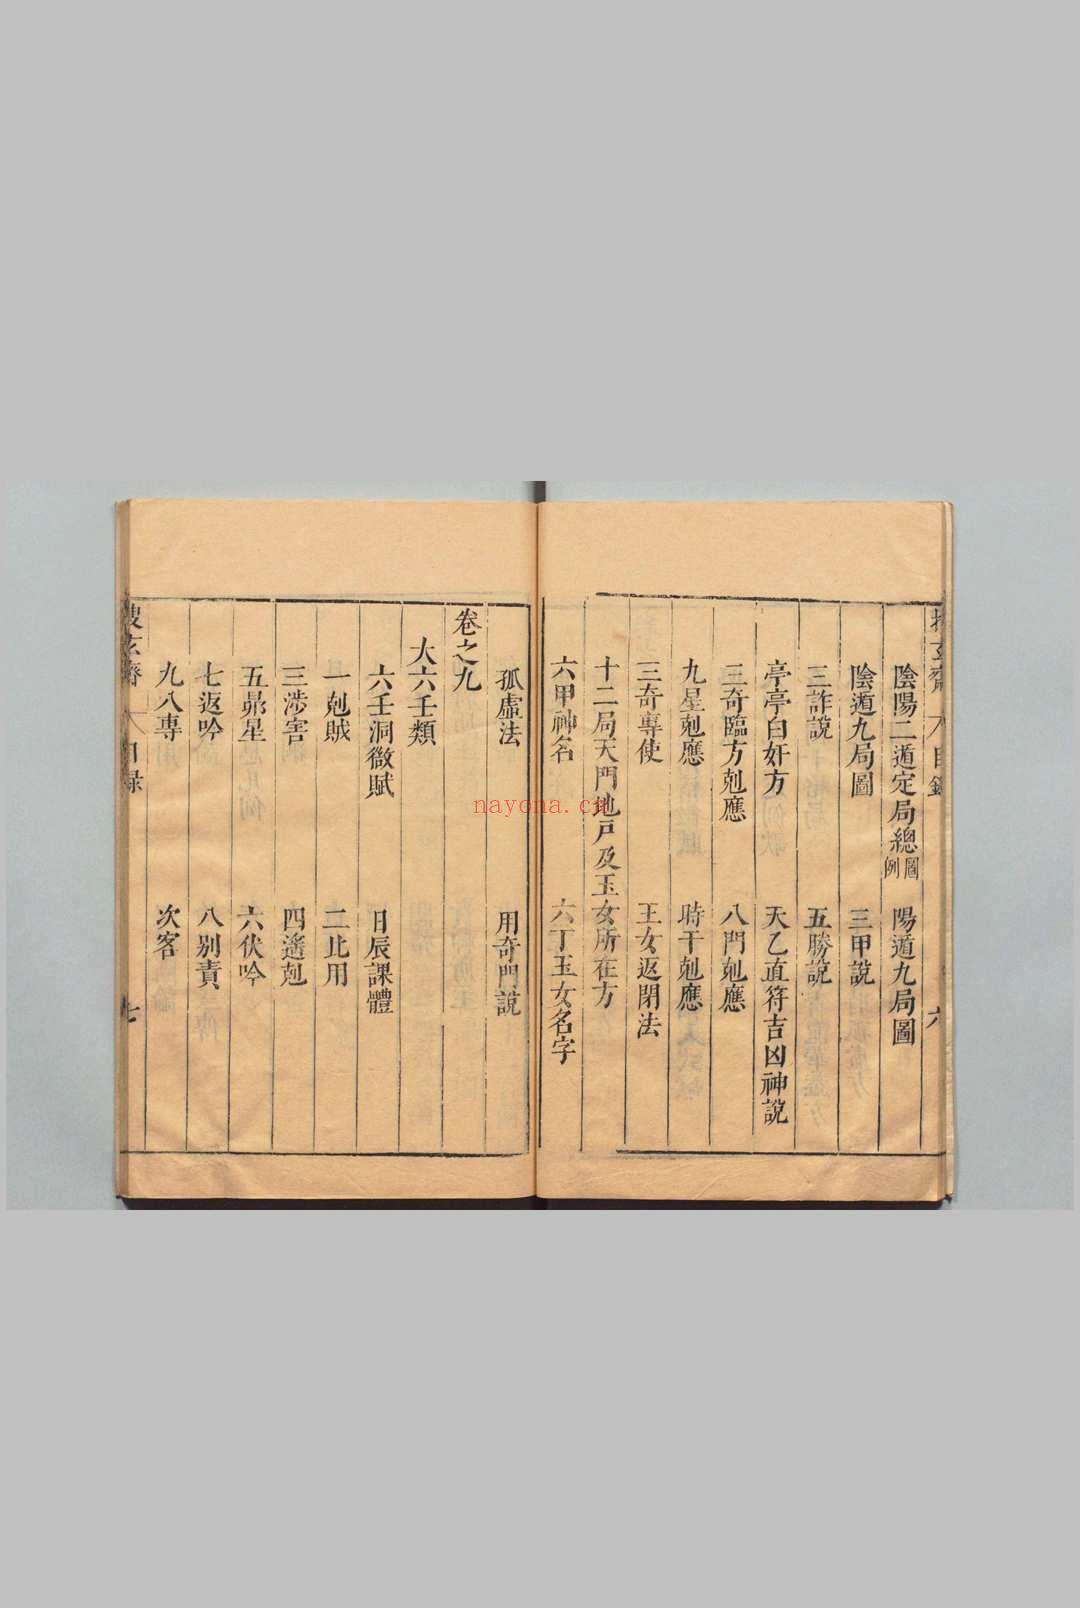 陰陽二遁定局總圖例　陽遁九局圖
陰遁九局圖　三甲說
三詐說　五勝說
亭亭白奸方　天乙直符吉凶神說
三奇臨方剋應　八門剋應
九星剋應　時干剋應
三奇專使　玉女返閉法
十二局天門地戸及玉女所在方
六甲神名　六丁玉女名字
六
孤虛法　用奇門說
卷之九
大六壬類
六壬洞微賦　日辰課體
一剋賊　二比用
三涉害　四遙剋
五昴星　六伏吟
七返吟　八别責
九八專　次客
玄齋　目録　七
nayona.cn